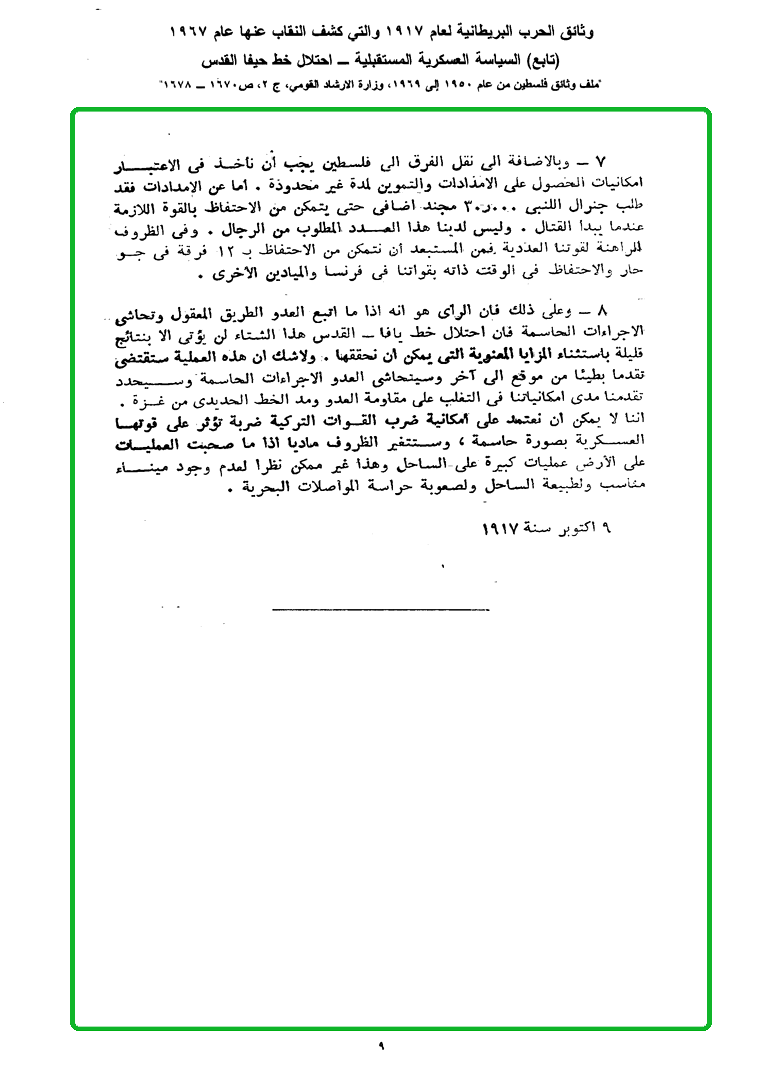 وثائق الحرب البريطانية لعام ١٩١٧ والتي كشف النقاب عنها عام ١٩٦٧
(تابع) السياسة العسكرية المستقبلية ــ احتلال خط حيفا القدس
"ملف وثائق فلسطين من عام ١٩٥٠ إلى ١٩٦٩، وزارة الارشاد القومي، ج ٢، ص١٦٧٠ ــ ١٦٧٨"
٧ ــ وبالاضافة الى نقل الفرق الى فلسطين يجب أن نأخذ فى الاعتبار
امكانيات الحصول على الامدادات والتموين لمدة غير محدودة . أما عن الإمدادات فقد
طلب جنرال اللنبى ٣٠٫٠٠٠ مجند اضافى حتى يتمكن من الاحتفاظ بالقوة اللازمة
عندما يبدا القتال . وليس لدينا هذا العدد المطلوب من الرجال . وفى الظروف
الراهنة لقوتنا العددية فمن المستبعد أن نتمكن من الاحتفاظ بـ ١٢ فرقة فى جو
حار والاحتفاظ فى الوقت ذاته بقواتنا فى فرنسا والميادين الأخرى .
٨ ــ وعلى ذلك فان الراى هو انه اذا ما اتبع العدو الطريق المعقول وتحاشى
الاجراءات الحاسمة فان احتلال خط يافا ــ القدس هذا الشتاء لن يؤتى الا بنتائج
قليلة باستثناء المزايا المعنوية التى يمكن ان نحققها . ولاشك ان هذه العملية ستقتضى
تقدما بطيئا من موقع الى آخر وسيتحاشى العدو الاجراءات الحاسمة وسيحدد
تقدمنا مدى امكانياتنا فى التغلب على مقاومة العدو ومد الخط الحديدى من غزة .
اننا لا يمكن ان نعتمد على امكانية ضرب القوات التركية ضربة تؤثر على قوتها
العسكرية بصورة حاسمة ، وستتغير الظروف ماديا اذا ما صحبت العمليات
على الأرض عمليات كبيرة على الساحل وهذا غير ممكن نظرا لعدم وجود ميناء
مناسب ولطبيعة الساحل ولصعوبة حراسة المواصلات البحرية .
٩ اكتوبر سنة ١٩١٧
٩